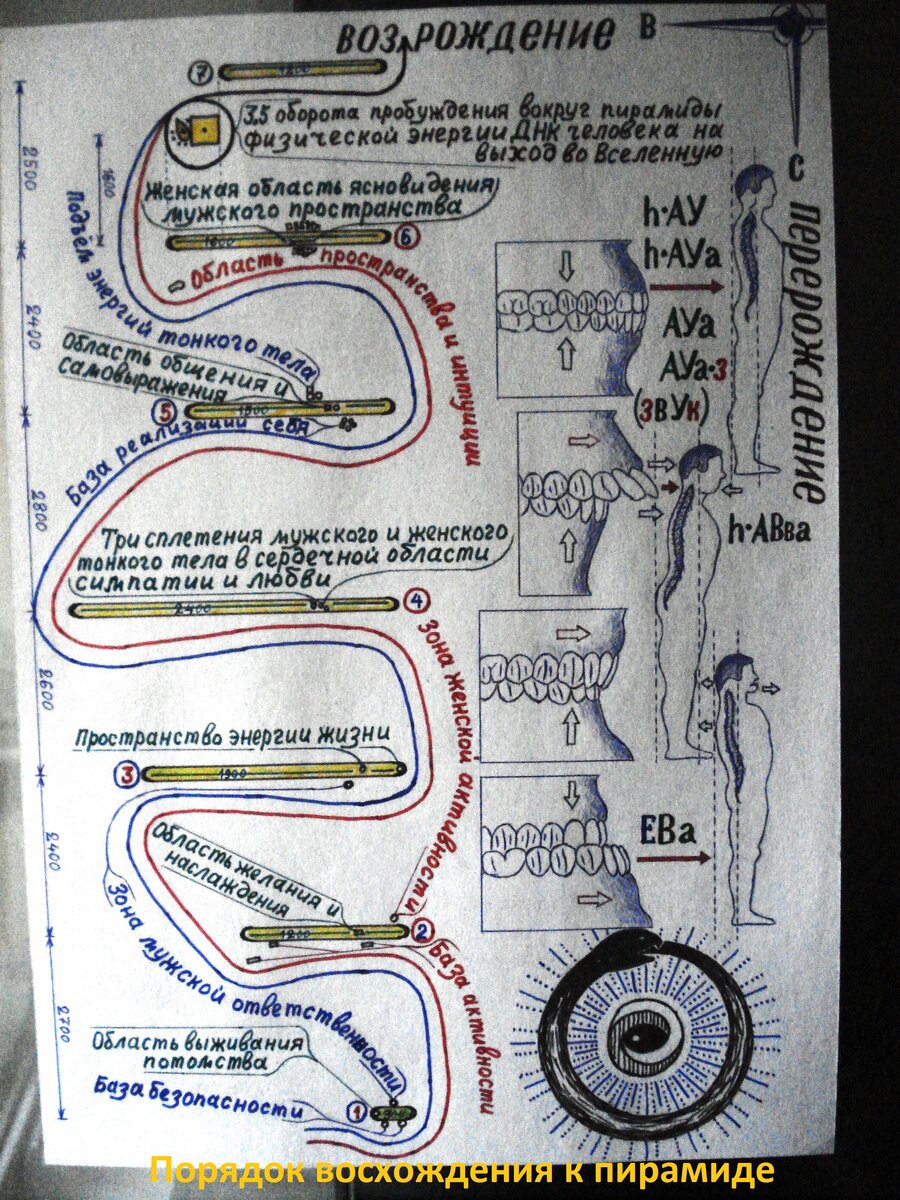 ВОЗРОЖДЕНИЕ
В
С
ПЕРЕРОЖДЕНИЕ
7
3,5 оборота пробуждения вокруг пирамиды
физической энергии ДНК человека на
выход во Вселенную
2500
1600
Подъём энергий тонкого тела
Женская область ясновидения
мужского пространства
6
Область пространства и интуиции
h·АУ
h·АУа
АУа
АУа·з
(ЗВУК)
2400
Область общения и
самовыражения
5
1800
База реализации себя
h·АВва
2800
Три сплетения мужского и женского
тонкого тела в сердечной области
симпатии и любви
2400
4
Зона женской активности
2600
Пространство энергии жизни
3
1900
2400
Область желания и
наслаждения
1200
2
База активности
ЕВа
Зона мужской ответственности
2700
Область выживания
потомства
База безопасности
1
Порядок восхождения к пирамиде